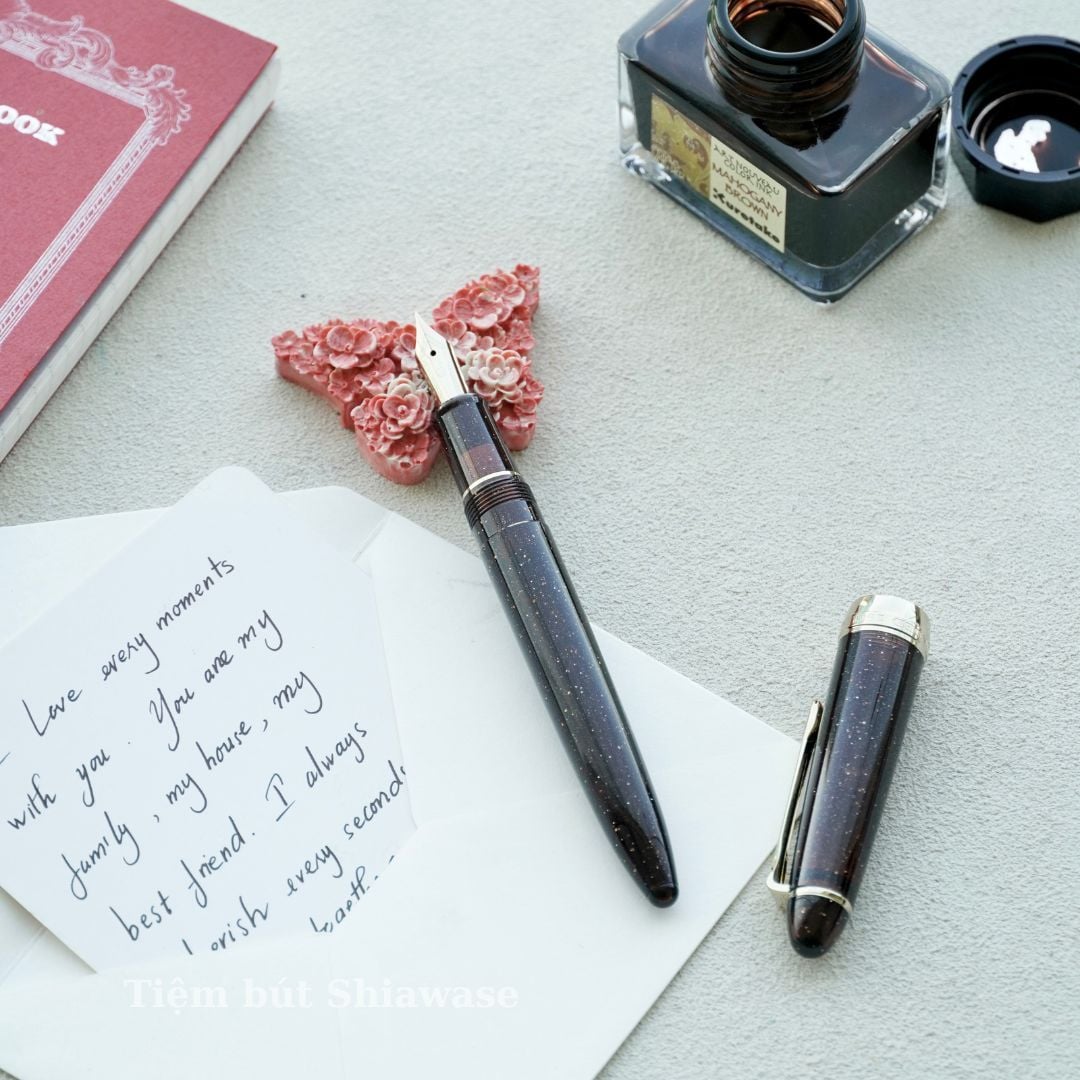 OOK
ART NOUVEAU
COLOR INK
MAHOGANY
BROWN
Kuretake
I Love every moments
with you. You are my
family, my house, my
best friend. I always
cherish every second
Tiệm bút Shiawase